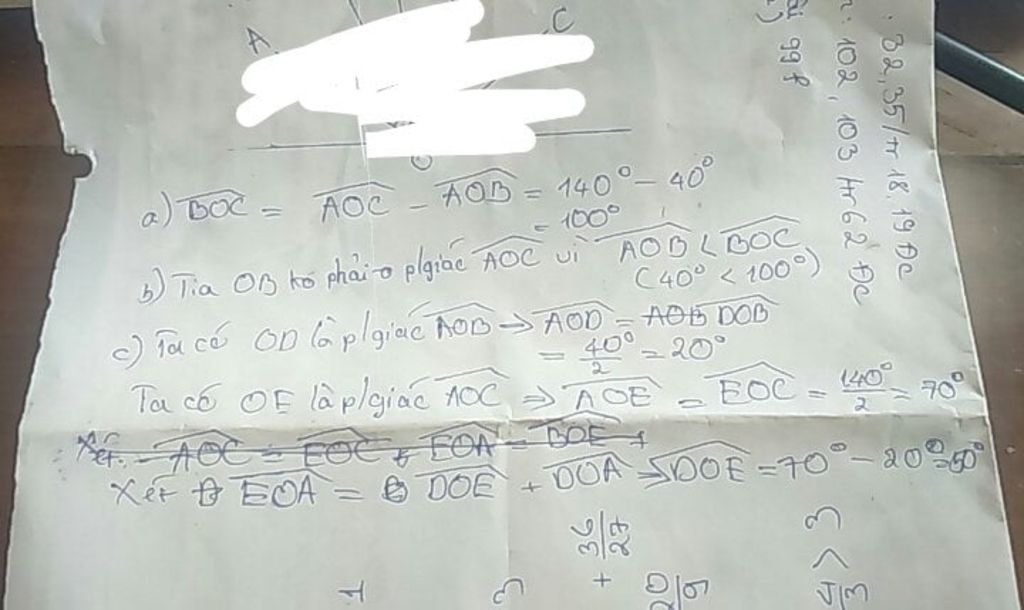 A
C
O
a) BOC = AOC - AOB = 140° - 40°
= 100°
b) Tia OB ko phải p/giác AOC vì AOB < BOC
(40° < 100°)
c) Ta có OD là p/giác AOB → AOD = AOB DOB
= 40°/2 = 20°
Ta có OE là p/giác AOC => AOE = EOC = 140°/2 = 70°
Xét AOC = EOC + EOA = BOE +
Xét EOA = DOE + DOA => DOE = 70° - 20° = 50°
32, 35/tr 18, 19 Đc
102, 103 tr 62 Đc
99 f
36/27 +
4/3 > 3
1
3